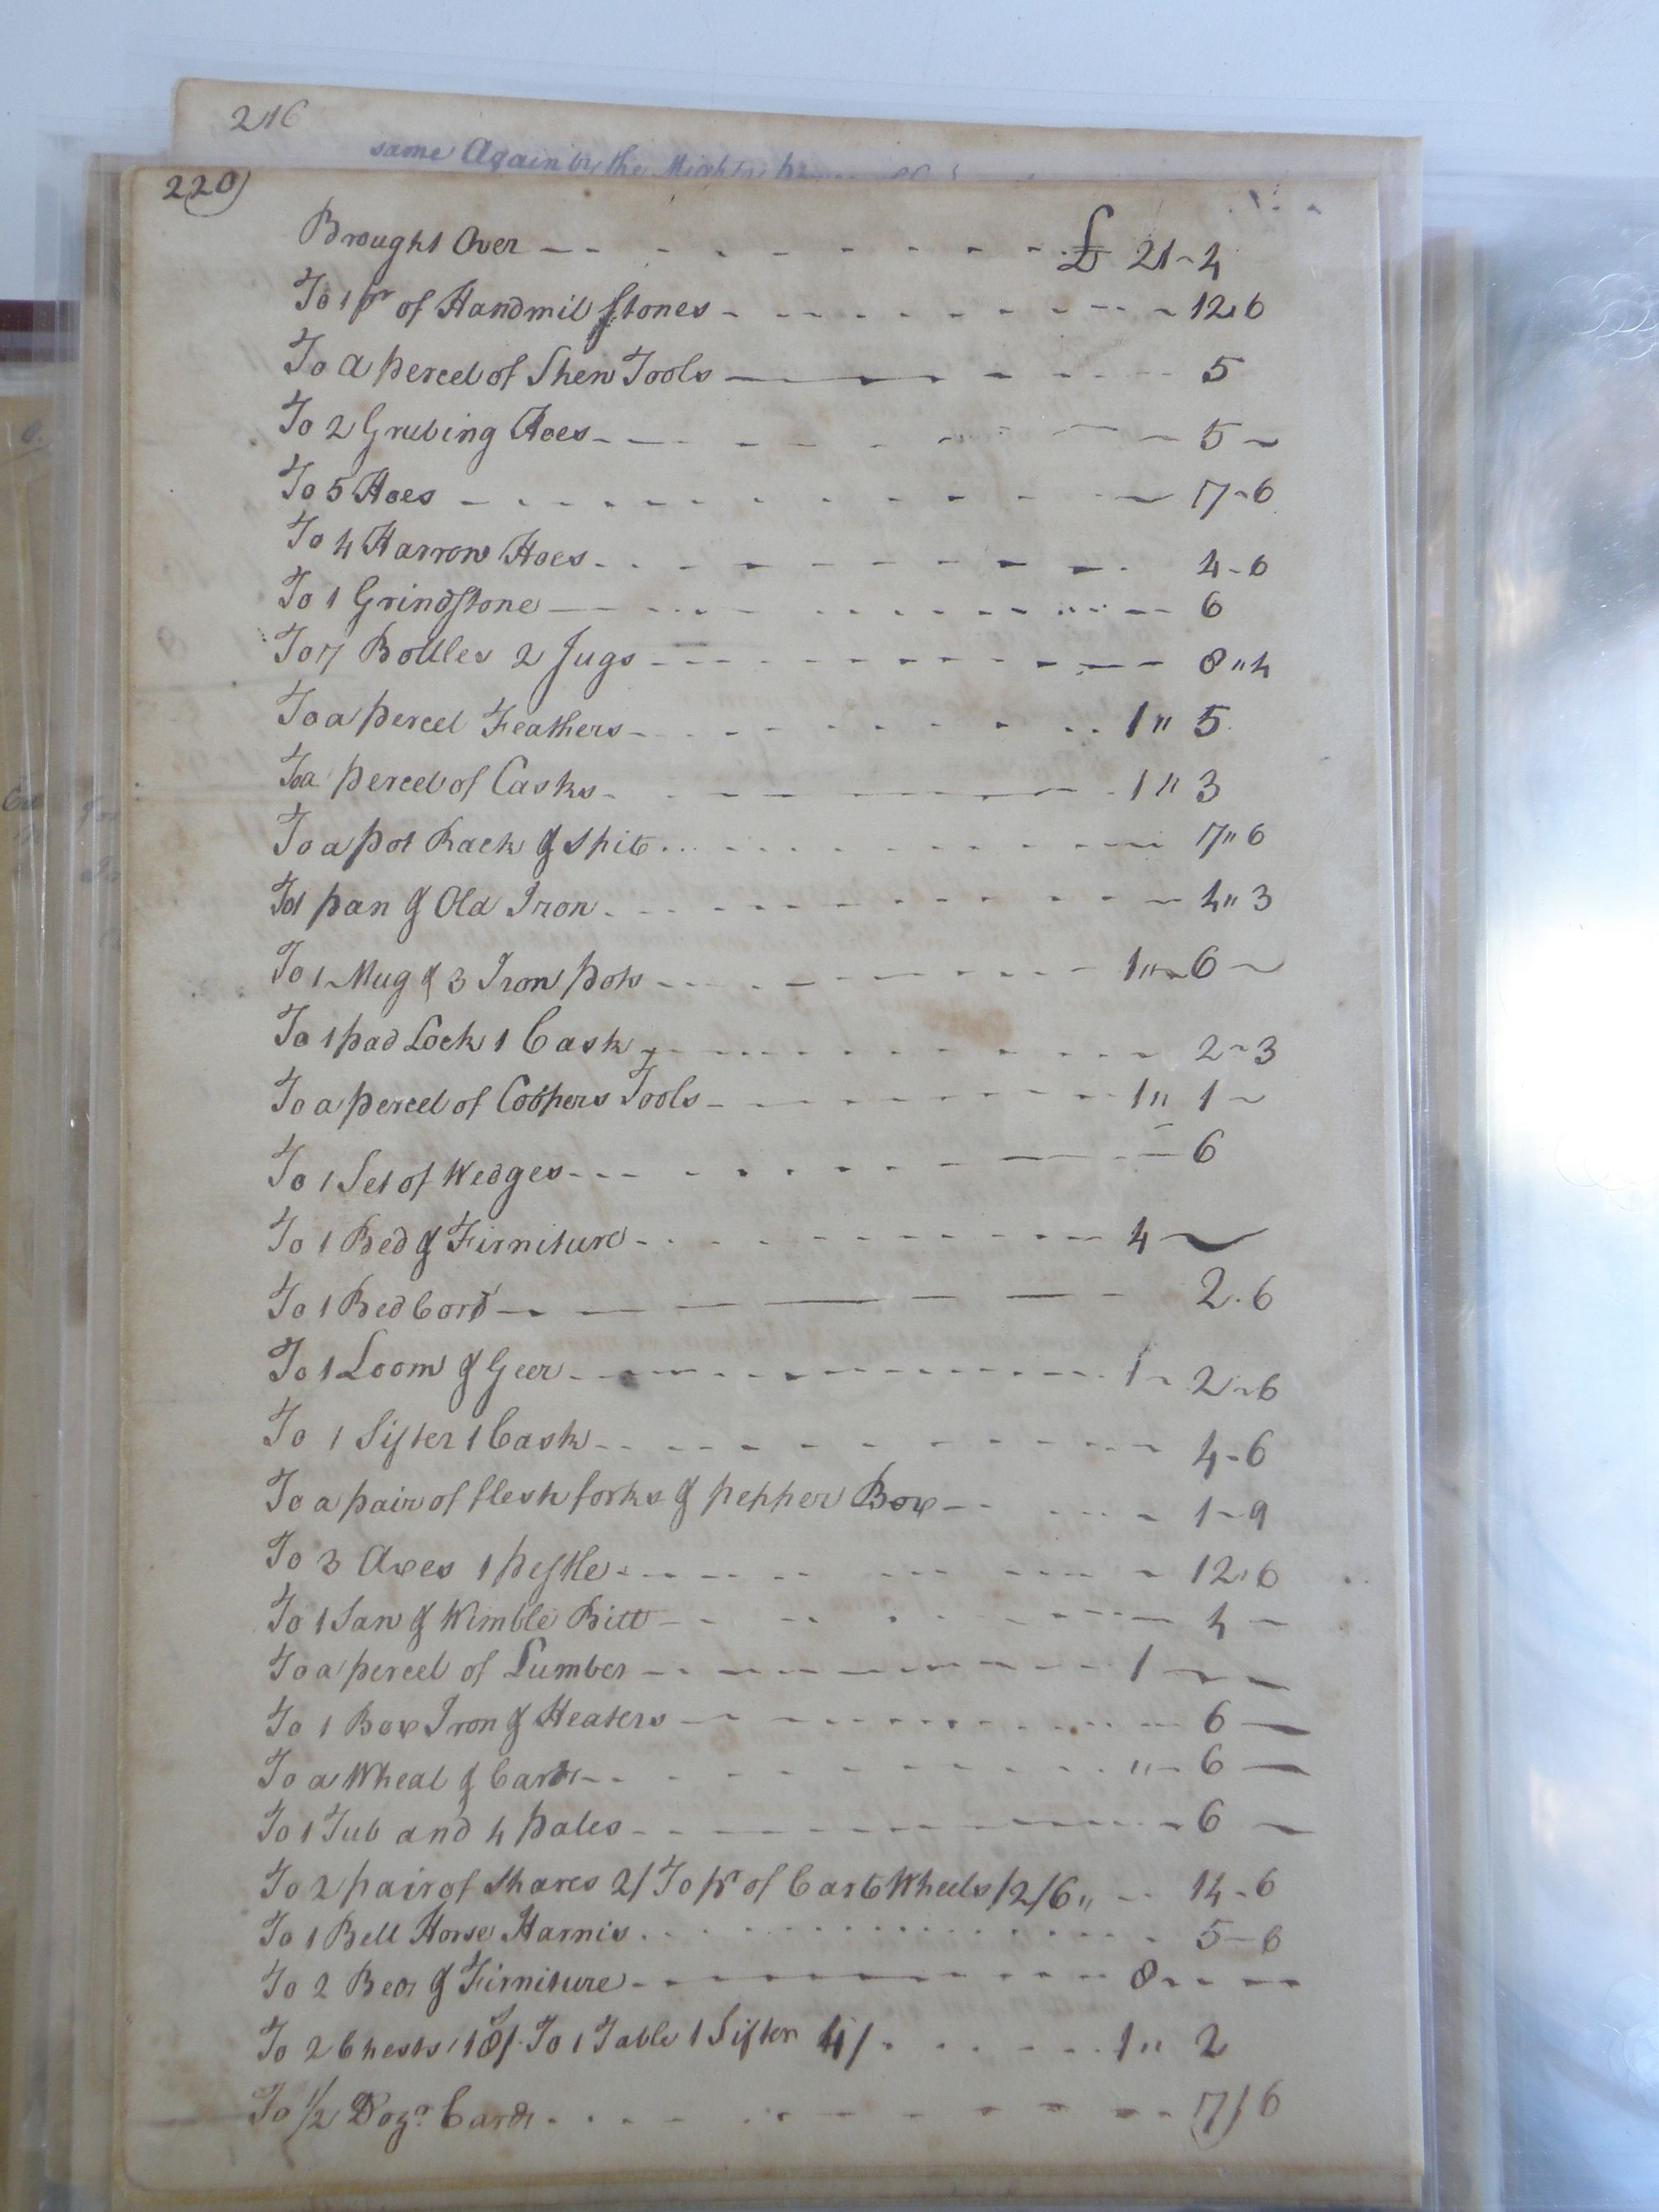 216
same Again by the Mighty
220
Brought Over £ 21 - 4
To 1 pr of Handmil Stones - 12.6
To a percel of Shew Tools - 5
To 2 Grubing Hoes - 5 -
To 5 Hoes - 7-6
To 4 Harrow Hoes - 4-6
To 1 Grindstone - 6
To 7 Bottles 2 Jugs - 8"4
To a percel Feathers - 1" 5
To a percel of Casks - 1" 3
To a pot Rack & Spit - 7"6
To 1 pan & Old Iron - 4"3
To 1 Mug & 3 Iron pots - 1" 6 -
To 1 pad Lock 1 Cask - 2-3
To a percel of Coopers Tools - 1" 1 -
To 1 Set of Wedges - 6
To 1 Bed & Firniture - 4 -
To 1 Bed Cord - 2.6
To 1 Loom & Geer - 1 - 2-6
To 1 Sifter 1 Cask - 4-6
To a pair of flesh forks & pepper Box - 1-9
To 3 Axes 1 pestle - 12.6
To 1 Saw & Wimble Bitt - 4 -
To a percel of Lumber - 1 - -
To 1 Box Iron & Heaters - 6 -
To a Wheal & Cards - " - 6 -
To 1 Tub and 4 pales - 6 -
To 2 pair of Shares 2/ To pr of Cart Wheels 12/6" - 14-6
To 1 Bell Horse Harnis - 5-6
To 2 Beds & Firniture - 8 - -
To 2 Chests 18/ To 1 Table 1 Sifter 4/ - 1" 2
To 1/2 Dozn Cards - 7/6